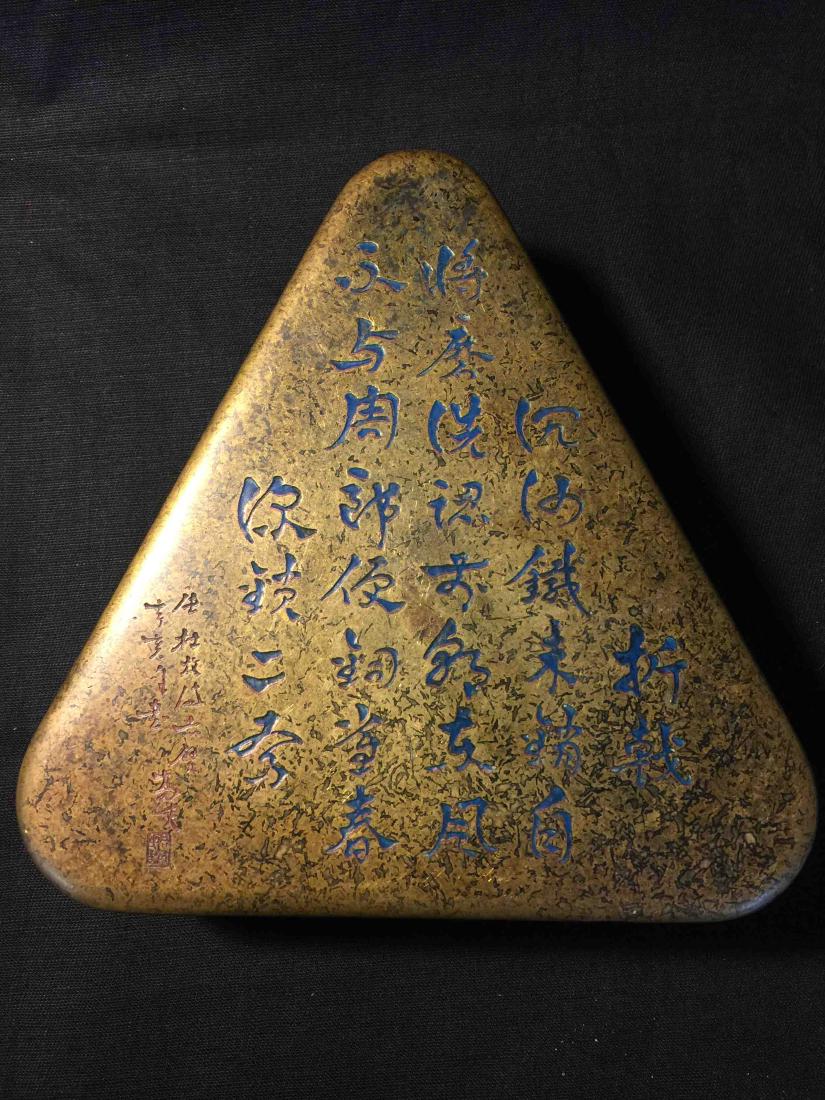 折戟
沉沙鐵未銷自
將磨洗認前朝东風
不与周郎便銅雀春
深鎖二喬
杜牧诗
辛亥年